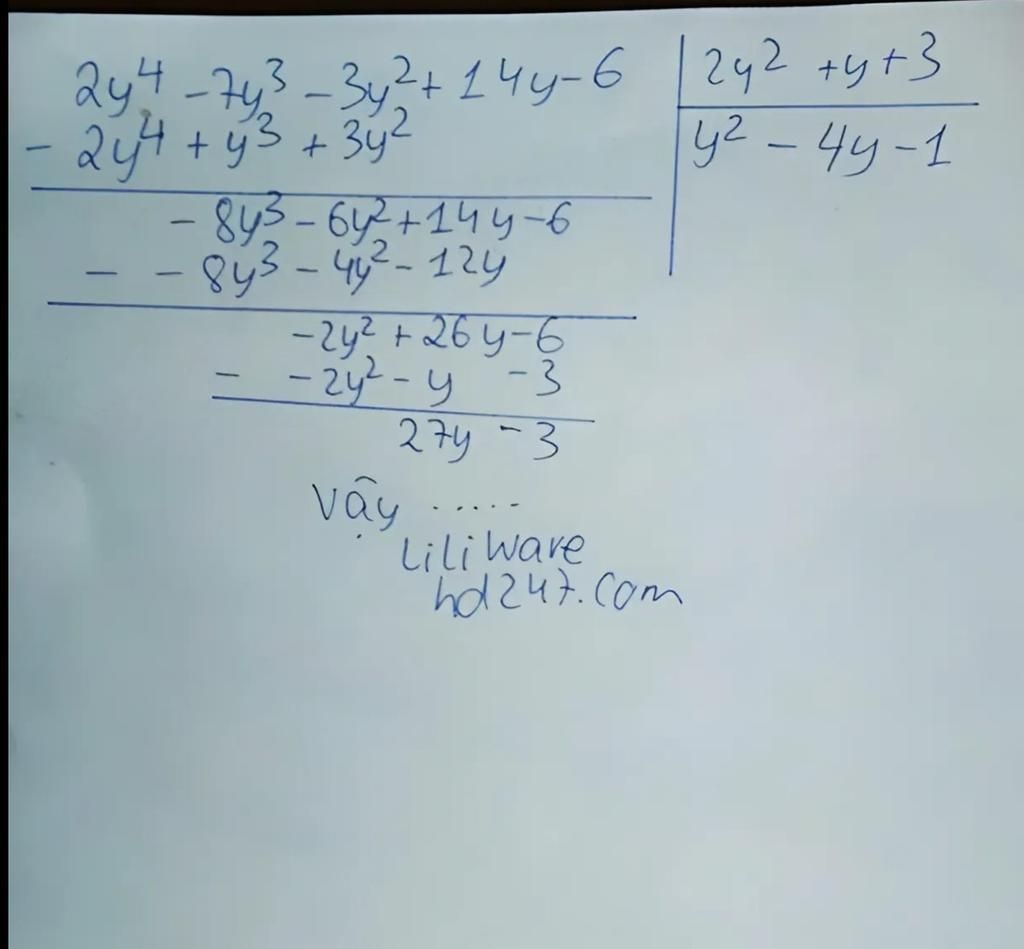 2y⁴ - 7y³ - 3y² + 14y - 6
2y² + y + 3
- 2y⁴ + y³ + 3y²
y² - 4y - 1
- 8y³ - 6y² + 14y - 6
- - 8y³ - 4y² - 12y
-2y² + 26y - 6
- -2y² - y - 3
27y - 3
Vậy .....
LiLiWare
hd247.com